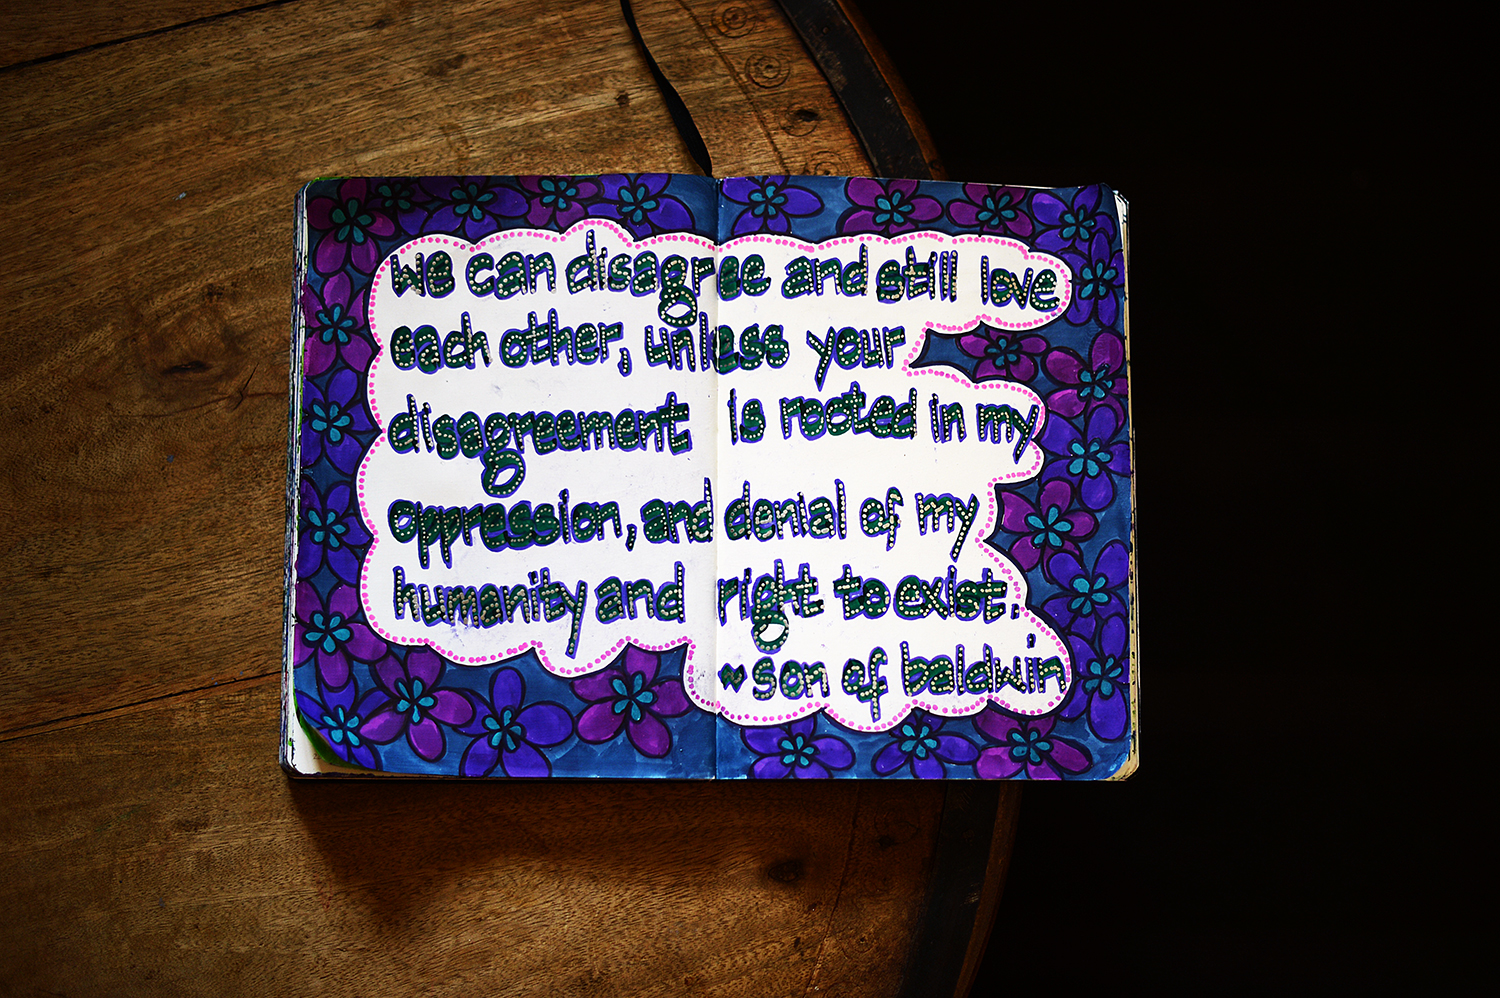 we can disagree and still love
each other, unless your
disagreement is rooted in my
oppression, and denial of my
humanity and right to exist.
~son of baldwin